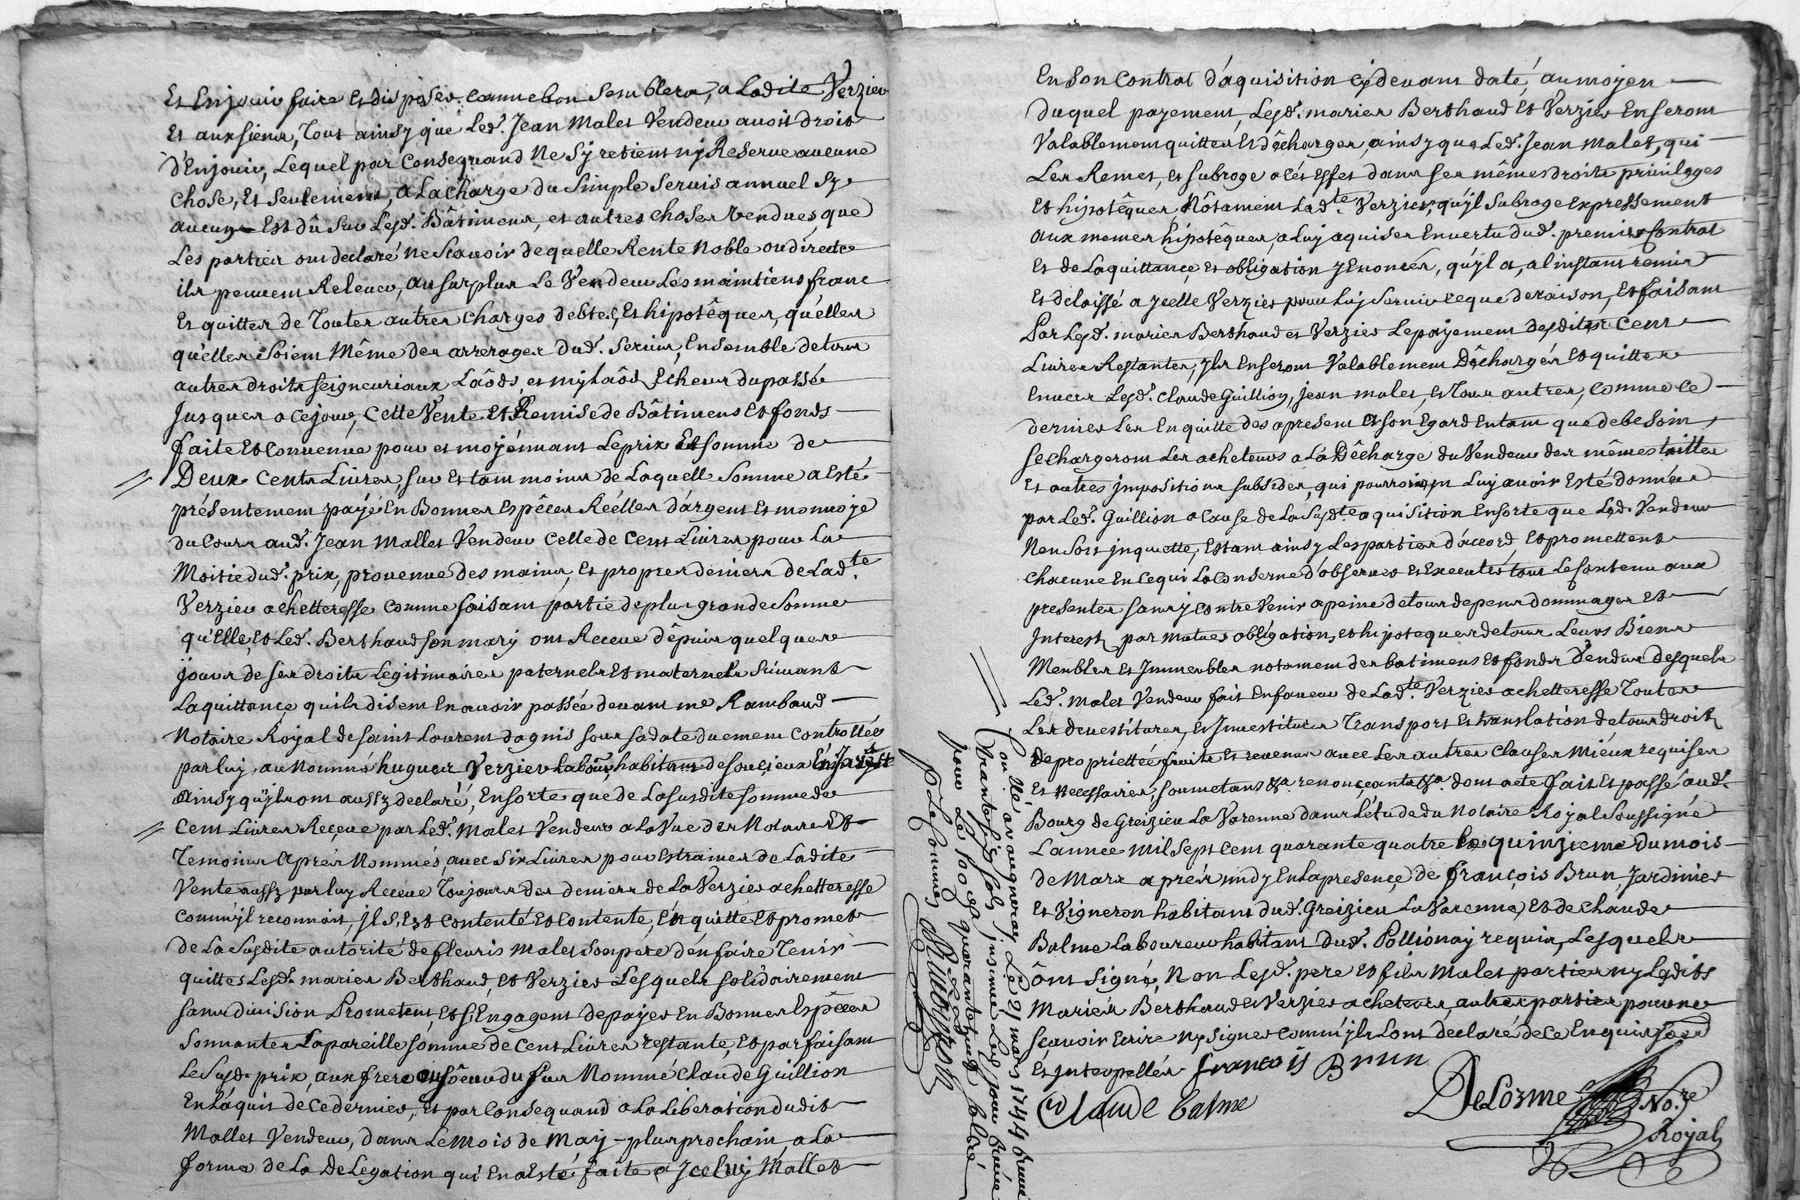 Et Enjouir faire Et disposer comme bon Semblera, a Ladite Verzier
Et aux siens, Tout ainsy que Led. Jean Malet Vendeur avoit droit
D'Enjouir, Lequel par Consequand Ne Sy retient ny Reserve aucune
Chose, Et Seulement, a La charge du Simple Servis annuel Sy
aucun Est dû Sur Lesd. Bâtimens, et autres choses Vendues, que
Les parties ont declaré ne Scavoir de quelle Rente Noble ou directe
ils peuvent Relever, au surplus Le Vendeur Les maintiens franc
Et quittes de Toutes autres Charges debtes, Et hipotêques, qu'elles
qu'elles Soient Même des arrerages dud. Servis, Ensemble de tous
autres droits Seigneuriaux Laôds et mylaôds Echeus du passée
Jusques a ce jour, Cette Vente Et Remise de Bâtimens Et fonds
faite Et Convenue pour et moyénnant Le prix Et Somme de
Deux Cents Livres sur Et tant moins de Laquelle Somme a Esté
présentement payé En Bonnes Espêces Réélles d'argent Et monnoye
du Cours aud. Jean Mallet Vendeur Celle de Cent Livres pour La
Moitie dud. prix, provenue des mains, Et propres deniers de Lad.te
Verzier achetteresse Comme faisant partie de plus grande Somme
qu'Elle, Et Led. Berthaud Son mary ont Receue dêpuis quelques
jours de Ses droits Legitimaires paternels Et maternels Suivant
La quittance qu'ils disent En avoir passée devant me Rambaud
Notaire Royal de Saint Laurent dagnis sous Sa date duement Controllées
par luy, au Nommé hugues Verzier Laboureur habitant de Soucieux
ainsy qu'ils ont aussy declaré, Ensorte que de La Susdite Somme de
Cent Livres Receue par Led. Malet Vendeur a La Vue des Notaire Et
Temoins Aprés Nommés, avec Six Livres pour Estraines de Ladite
Vente aussy par luy Receue Toujours des deniers de La Verzier achetteresse
Comm'il reconnoit, Il S'Est Contenté Et Contente, En quitte Et promet
de La Susdite autorité de fleuris Malet Son pere d'en faire Tenir
quittes Lesd. mariés Berthaud, Et Verzier Lesquels Solidairement
Sans division Promettent, Et S'Engagent de payer En Bonnes Espêces
Sonnantes La pareille Somme de Cent Livres restante, Et parfaisant
Le Susd. prix, aux frere ou Sôeur du feu Nommé Claude Guillion
En L'aquit de Ce dernier, Et par Consequand a La Liberation dudit
Mallet Vendeur, dans Le Mois de May plus prochain a La
forme de La Delegation qui En a Esté faite a Jceluy Mallet
En Son Contrat d'aquisition cy devant daté, au moyen
duquel payement, Lesd. mariés Berthaud Et Verzier En Seront
Valablement quittes Et dêchargés, ainsy que Led. Jean Malet, qui
Les Remet, Et Subroge a cés Effet dans Ses mêmes droits privileges
Et hipotêques, Nôtament Lad.te Verzier, qu'il Subroge Expressement
aux memes hipotêques, a Luy aquises En vertu dud. premier Contrat
Et de La quittance, Et obligation y Enoncés, qu'yl a, a l'instant remis
Et delaissé a ycelle Verzier pour Luy Servir ce que de raison, Et faisant
Par Lesd. mariés Berthaud et Verzier Le payement desdites Cent
Livres Restantes, yls En Seront Valablement Dêchargés Et quittes
Envers Lesd. Claude Guillion, Jean malet, Et Tous autres, Comme Ce
dernier Les En quitte des apresent A Son Egard En tant que de besoin,
Se chargeront Les acheteurs a La Dêcharge du Vendeur des mêmes tailles
Et autres impositions Subsides, qui pourroient Luy avoir Esté donnés
par Led. Guillion a Cause de La Susd.te aquisition Ensorte que Led. Vendeur
N'en Soit jnquietté, Estant ainsy Les parties d'accord Et promettent
Chacune En Cequi La Conserne d'observer et Executer tout Le Contenu aux
presentes Sans y Contrevenir a peine de tous depens dommages Et
Interest, par Mutues obligation, Et hipoteques de tous Leurs Biens
Meubles Et Jmmeubles notament des batimens Et fonds Vendus desquels
Led. Malet Vendeur fait En faveur de Lad.te Verzier achetteresse Toutes
Les devestitures, Et Jnvestitures Transport Et translation de tous droits
de proprietté fruits Et revenus avec Les autres Clauses Mieux requises
Et Necessaires, Soumetans &a renonçants &a. dont acte fait Et passé aud.
Bourg de Greizieu La Varenne dans L'étude du Notaire Royal Soussigné
L'année Mil Sept Cent quarante quatre Le quinzieme du mois
de Mars aprés midy En La presence de françois Brun Jardinier
Et Vigneron habitant dud. Greizieu La Varenne, Et de Claude
Balme Laboureur habitant dud. Pollionay requis, Lesquels
Ônt Signé, Non Lesd. pere Et fils Malet parties ny Lesdits
Mariés Berthaud et Verzier acheteurs, autres parties pour ne
Scavoir Ecrire Ny Signer Comm'yls L'ont declaré de Ce Enquis
Et Interpellés. françois Brun
Claude balme
DeLorme No.re
Royal